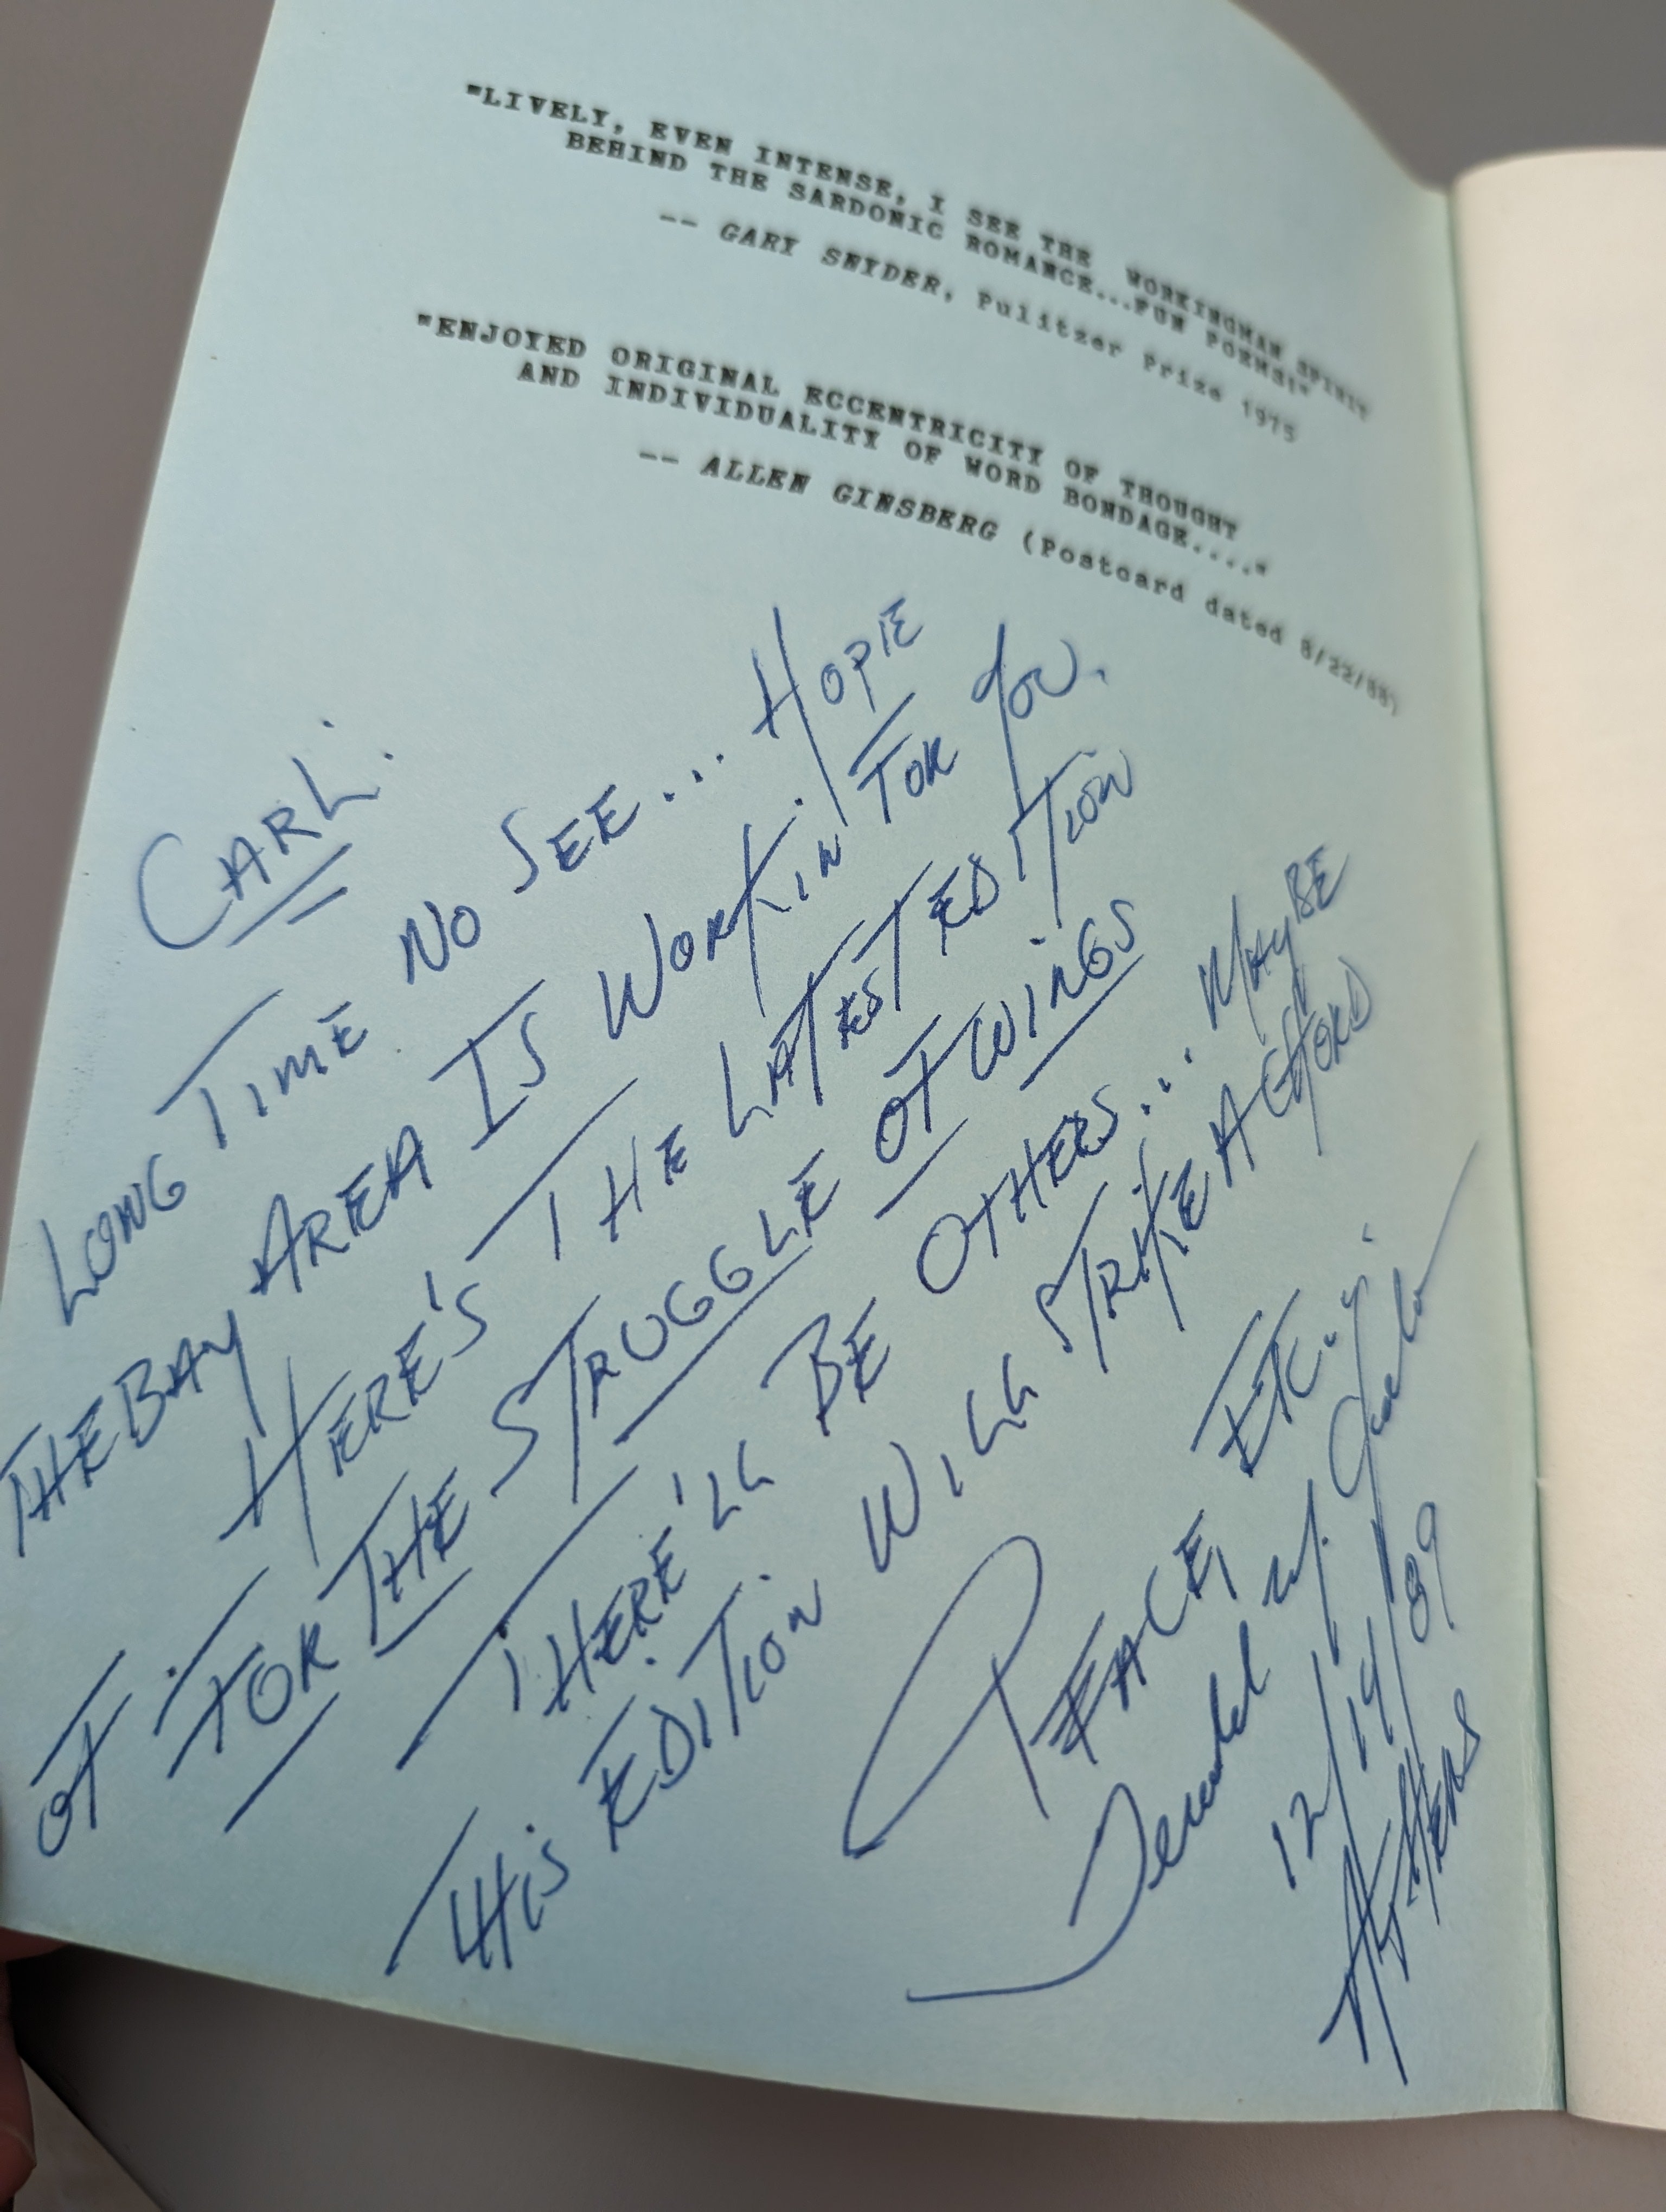 "LIVELY, EVEN INTENSE, I SEE THE WORKINGMAN SPIRIT
BEHIND THE SARDONIC ROMANCE...FUN POEMS!"
-- GARY SNYDER, Pulitzer Prize 1975
"ENJOYED ORIGINAL ECCENTRICITY OF THOUGHT
AND INDIVIDUALITY OF WORD BONDAGE...."
-- ALLEN GINSBERG (Postcard dated 8/22/88)
CARL:
LONG TIME NO SEE... HOPE
THE BAY AREA IS WORKIN FOR YOU.
HERE'S THE LATEST EDITION
OF: FOR THE STRUGGLE OF WINGS
THERE'LL BE OTHERS... MAYBE
THIS EDITION WILL STRIKE A CHORD
PEACE, ETC.,
12/14/89
ATHENS